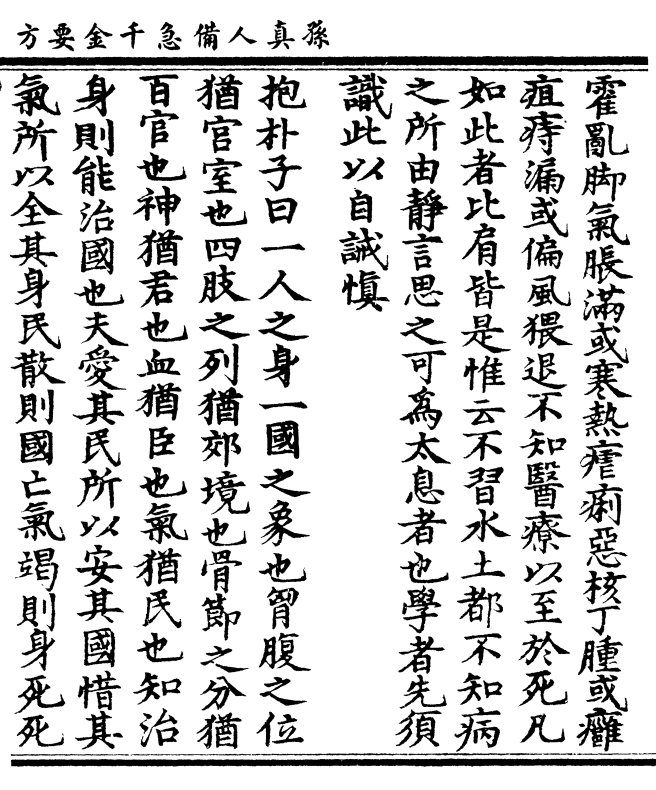 孫真人備急千金要方
霍亂脚氣脹滿或寒熱瘧痢惡核丁腫或癰
疽痔漏或偏風猥退不知醫療以至於死凡
如此者比肩皆是惟云不習水土都不知病
之所由靜言思之可爲太息者也學者先須
識此以自誡愼
抱朴子曰一人之身一國之象也胷腹之位
猶宮室也四肢之列猶郊境也骨節之分猶
百官也神猶君也血猶臣也氣猶民也知治
身則能治國也夫愛其民所以安其國惜其
氣所以全其身民散則國亡氣竭則身死死